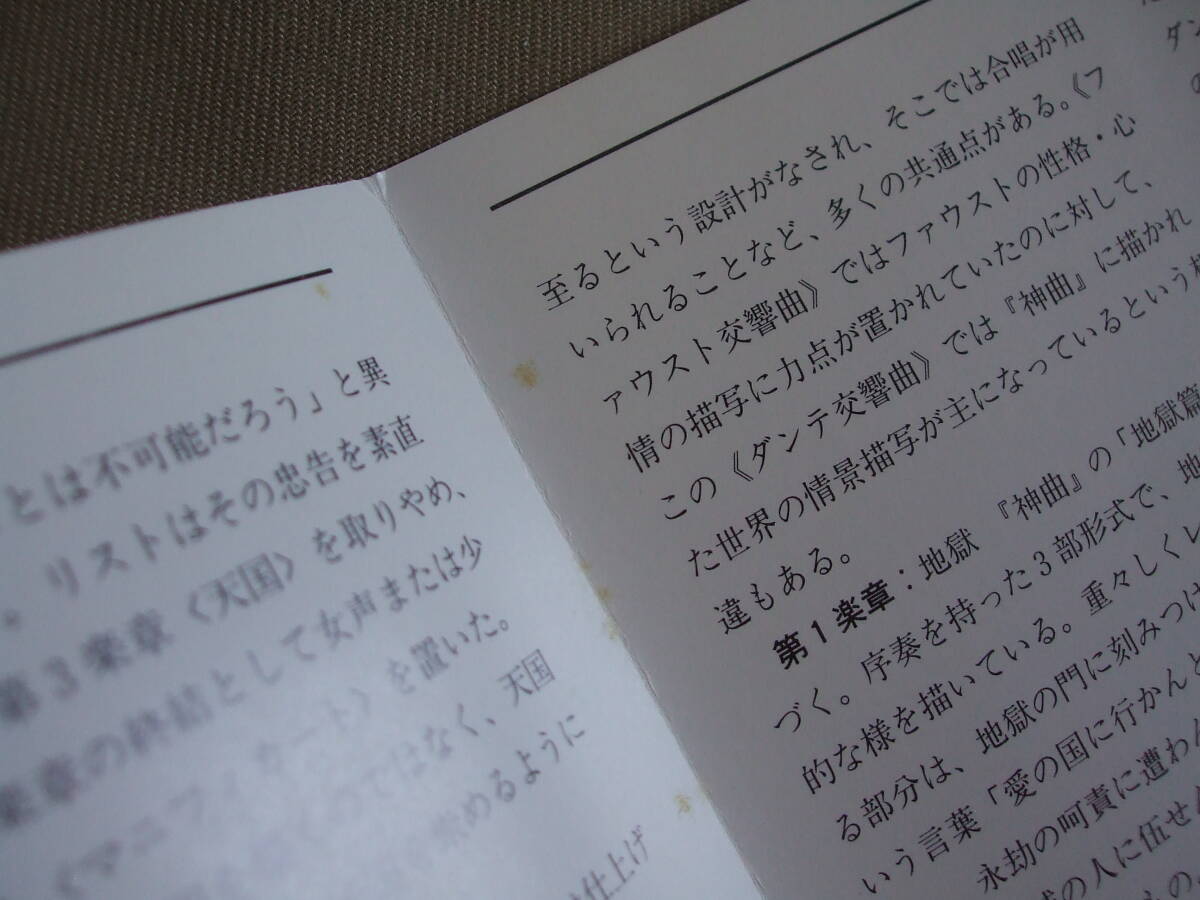 とは不可能だろう」と異
。リストはその忠告を素直
第3楽章〈天国〉を取りやめ、
楽章の終結として女声または少
《マーニフィカート》を置いた。
のではなく、天国
めるように
仕上げ
至るという設計がなされ、そこでは合唱が用
いられることなど、多くの共通点がある。《フ
ァウスト交響曲》ではファウストの性格・心
情の描写に力点が置かれていたのに対して、
この《ダンテ交響曲》では『神曲』に描かれ
た世界の情景描写が主になっているという相
違もある。
第1楽章：地獄 『神曲』の「地獄篇
づく。序奏を持った3部形式で、地
的な様を描いている。重々しくレ
る部分は、地獄の門に刻みつけ
いう言葉「愛の国に行かんと
永劫の呵責に遭わん
の人に伍せん
もの。
ダン
の